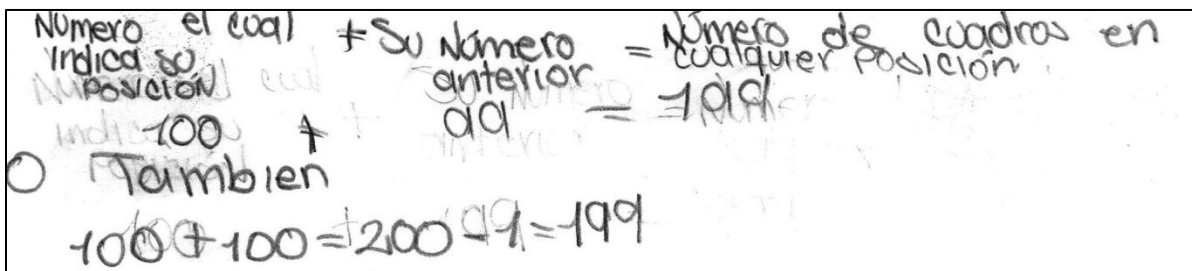 Número el cual indica su posición + Su Número anterior = Número de cuadros en cualquier posición.
100 + 99 = 199
O Tambien
100 + 100 = 200 - 1 = 199